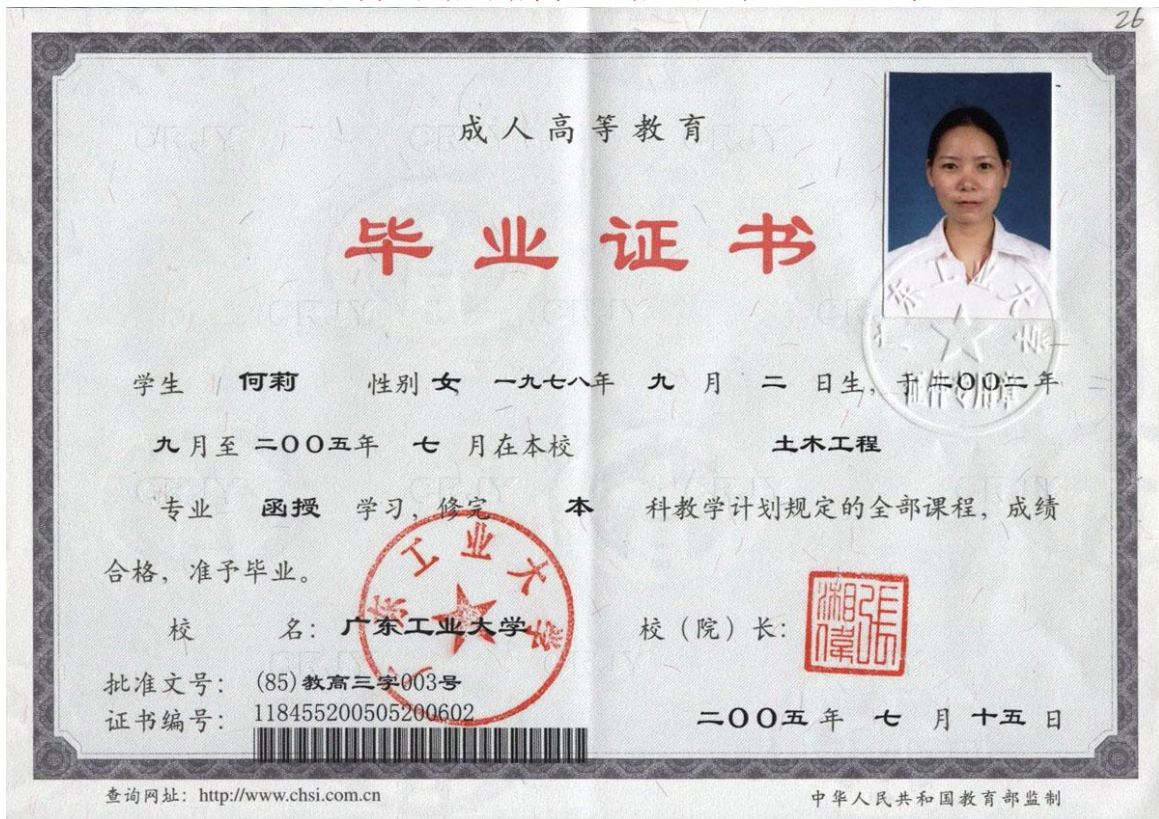 26
成人高等教育
毕业证书
学生 何莉 性别 女 一九七八年 九 月 二 日生, 于二〇〇二年
九月至 二〇〇五年 七 月在本校 土木工程
专业 函授 学习, 修完 本 科教学计划规定的全部课程, 成绩
合格, 准予毕业。
校 名: 广东工业大学 校（院）长:
张湘伟
批准文号: (85)教高三字003号
证书编号: 118455200505200602
二〇〇五 年 七 月 十五 日
查询网址: http://www.chsi.com.cn
中华人民共和国教育部监制
广东工业大学
证件专用章
CRJY